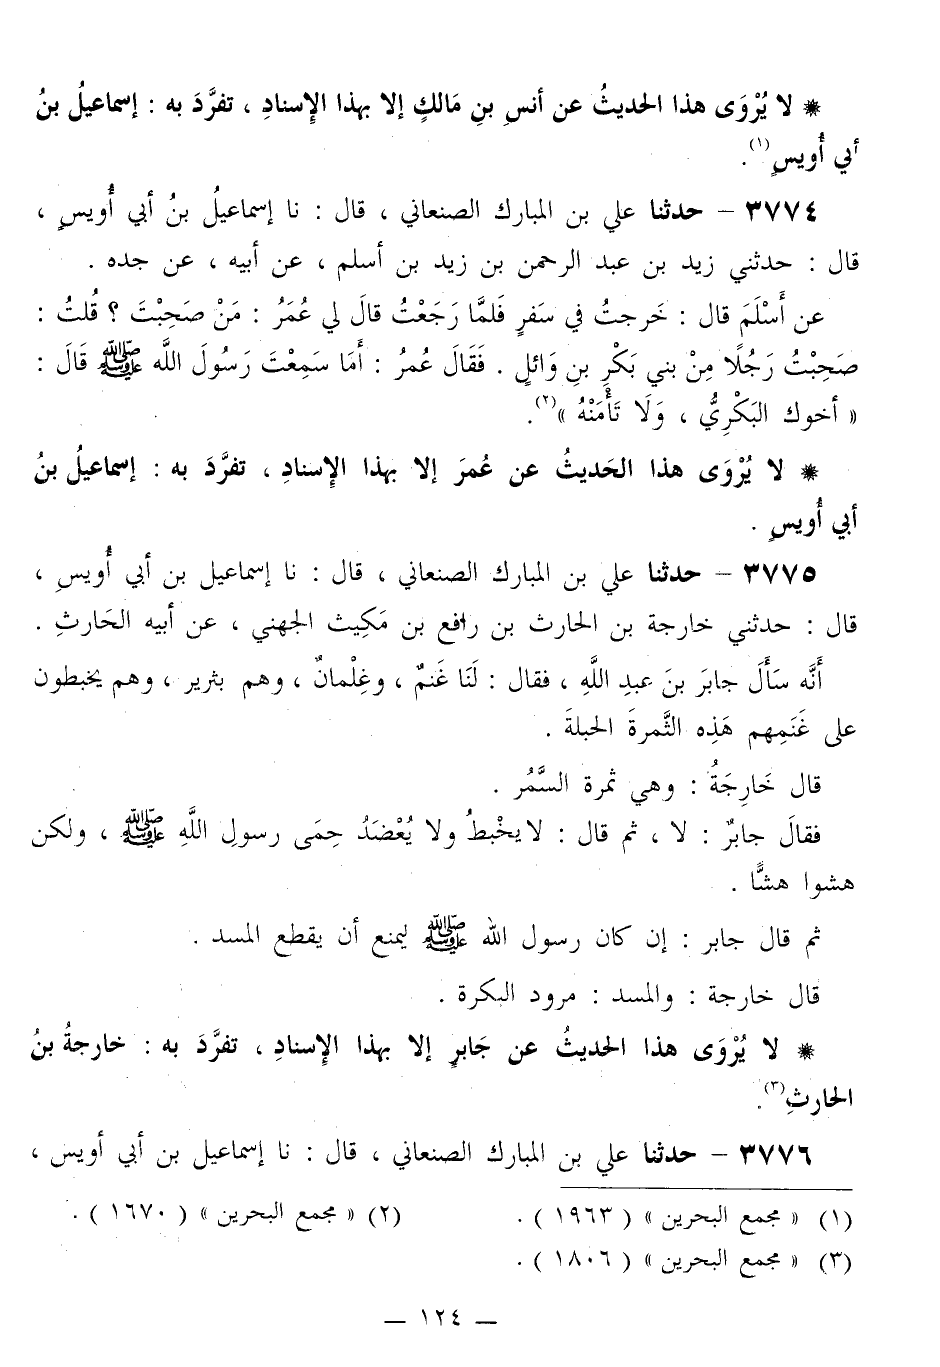 * لا يُرْوَى هذا الحديثُ عن أنسِ بنِ مَالكٍ إلا بهذا الإِسنادِ ، تفرَّدَ به : إسماعيلُ بنُ
أبي أُويسٍ(١).
٣٧٧٤ – حدثنا علي بن المبارك الصنعاني ، قال : نا إسماعيلُ بنُ أبي أُويسٍ ،
قال : حدثني زيد بن عبد الرحمن بن زيد بن أسلم ، عن أبيه ، عن جده .
عن أَسْلَمَ قال : خَرجتُ في سَفرٍ فَلمَّا رَجَعْتُ قالَ لي عُمَرُ : مَنْ صَحِبْتَ ؟ قُلتُ :
صَحِبْتُ رَجُلًا مِنْ بني بَكْرِ بنِ وَائلٍ . فَقَالَ عُمرُ : أَمَا سَمِعْتَ رَسُولَ اللَّه ﷺ قَالَ :
« أخوك البَكْرِيُّ ، وَلَا تَأْمَنْهُ »(٢).
* لا يُرْوَى هذا الحَديثُ عن عُمرَ إلا بهذا الإِسنادِ ، تفرَّدَ به : إسماعيلُ بنُ
أبي أُويسٍ .
٣٧٧٥ – حدثنا علي بن المبارك الصنعاني ، قال : نا إسماعيل بن أبي أُويسِ ،
قال : حدثني خارجة بن الحارث بن رافع بن مَكِيث الجهني ، عن أبيه الحَارثِ .
أَنَّه سَأَلَ جابرَ بنَ عبدِ اللَّهِ ، فقال : لَنَا غَنمٌ ، وغِلْمانٌ ، وهم بثرير ، وهم يخبطون
على غَنَمِهم هَذِه الثَّمرةَ الحبلةَ .
قال خَارِجَةُ : وهي ثمرة السَّمُر .
فقالَ جابرٌ : لا ، ثم قال : لا يخْبطُ ولا يُعْضَدُ حِمَى رسولِ اللَّهِ ﷺ ، ولكن
هشوا هشًّا .
ثم قال جابر : إن كان رسول الله ﷺ ليمنع أن يقطع المسد .
قال خارجة : والمسد : مرود البكرة .
* لا يُرْوَى هذا الحديثُ عن جَابرٍ إلا بهذا الإِسنادِ ، تفرَّدَ به : خارجةُ بنُ
الحارثِ(٣).
٣٧٧٦ – حدثنا علي بن المبارك الصنعاني ، قال : نا إسماعيل بن أبي أويس ،
(١) « مجمع البحرين » ( ١٩٦٣ ) . (٢) « مجمع البحرين » ( ١٦٧٠ ) .
(٣) « مجمع البحرين » ( ١٨٠٦ ) .
– ١٢٤ –